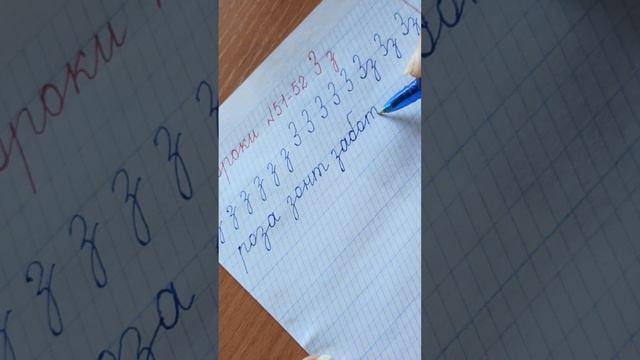 уроки №51-52 З з
з з з з з з З З З З З Зз Зз Зз
роза зонт забот